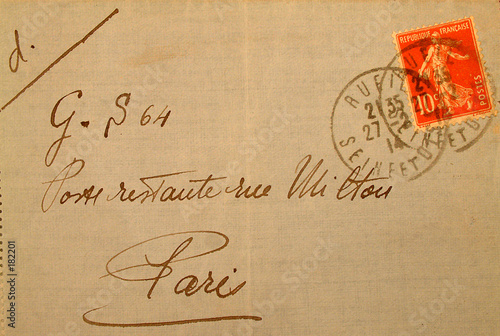 d.
G. S 64
Poste restante rue Milton
Paris
REPUBLIQUE FRANÇAISE
10c
POSTES
RUEIL
21 35
27 - 2
14
SEINE ET OISE
# 182201
Adobe Stock